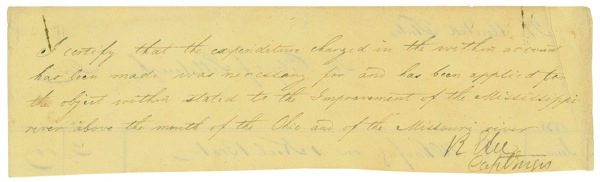 I certify that the expenditure charged in the within account
has been made was necessary for and has been applied for
the object within stated to the Improvement of the Mississippi
river above the mouth of the Ohio and of the Missouri river
R E Lee
Capt Engrs